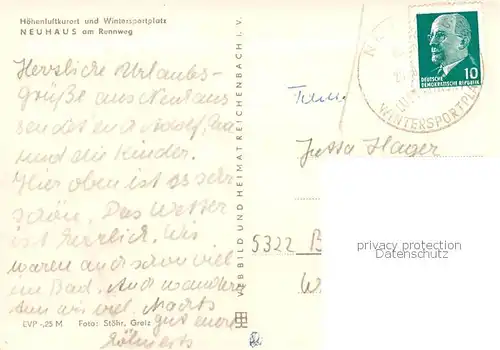 Höhenluftkurort und Wintersportplatz
NEUHAUS am Rennweg
Herzliche Urlaubs-
grüße aus Neuhaus
sendet euch Adolf,
und die Kinder.
Hier oben ist es sehr
schön. Das Wetter
ist herrlich. Wir
waren auch schon viel
im Bad. Auch wandern
tun wir viel. Nachts
gut
EVP -,25 M Foto: Stöhr, Greiz
VEB BILD UND HEIMAT REICHENBACH I. V.
10
DEUTSCHE
DEMOKRATISCHE REPUBLIK
WINTERSPORTPLA
Fam.
Jutta Hager
5322 B
privacy protection
Datenschutz